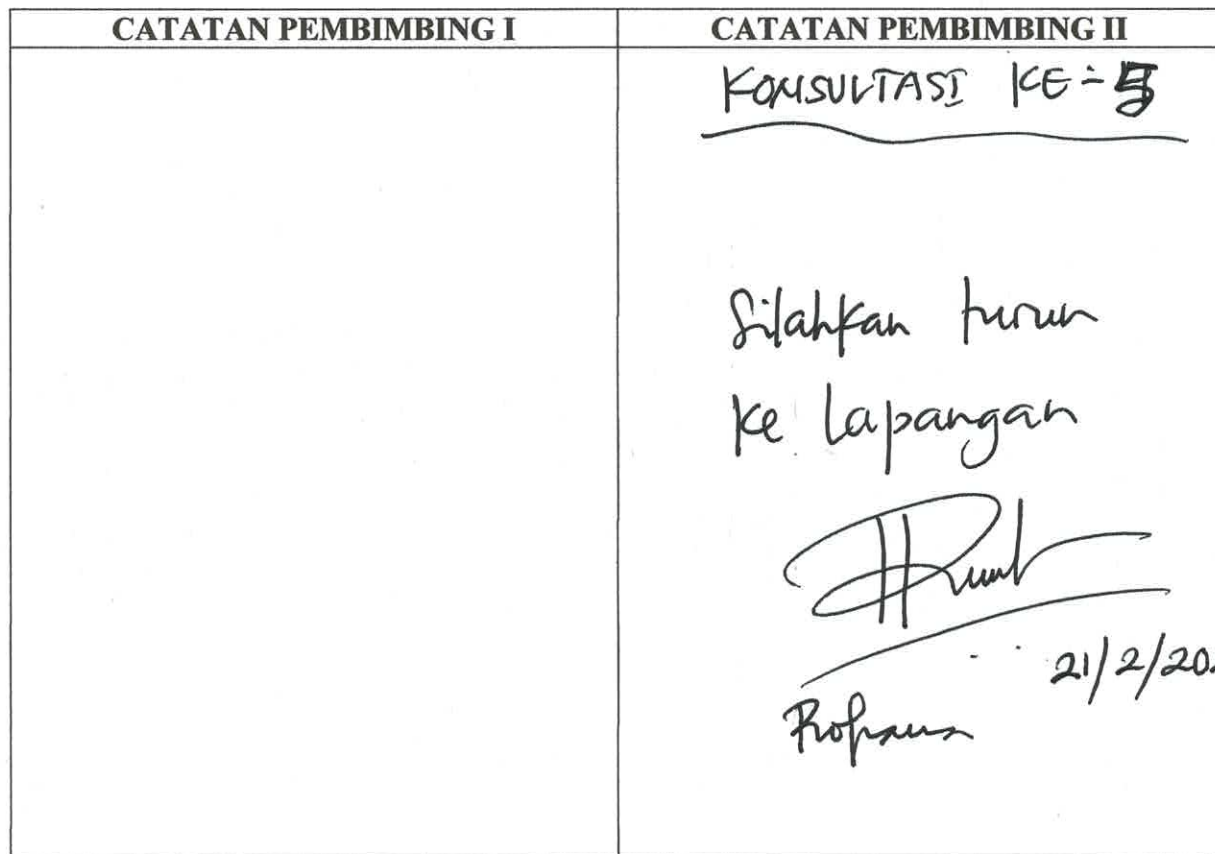 CATATAN PEMBIMBING I
CATATAN PEMBIMBING II
KONSULTASI KE-5
Silahkan turun
ke lapangan
21/2/20